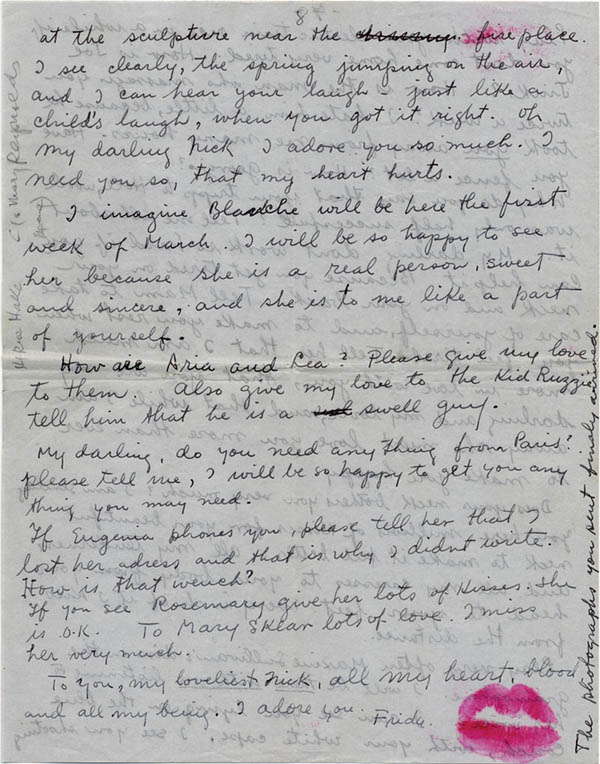 8
at the sculpture near the fire place.
I see clearly, the spring jumping on the air,
and I can hear your laugh – just like a
child's laugh, when you got it right. Oh
my darling Nick I adore you so much. I
need you so, that my heart hurts.
I imagine Blanche will be here the first
week of March. I will be so happy to see
her because she is a real person, sweet
and sincere, and she is to me like a part
of yourself.
How are Aria and Lea? Please give my love
to them. Also give my love to the Kid Ruzzie
tell him that he is a swell guy.
My darling, do you need any thing from Paris?
please tell me, I will be so happy to get you any
thing you may need.
If Eugenia phones you, please tell her that I
lost her adress and that is why I didnt write.
How is that wench?
If you see Rosemary give her lots of Kisses. She
is O.K. To Mary Sklar lots of love. I miss
her very much.
To you, my loveliest Nick, all my heart, blood
and all my being. I adore you. Frida.
The photographs you sent finaly arrived.
c/o Mary Reynolds